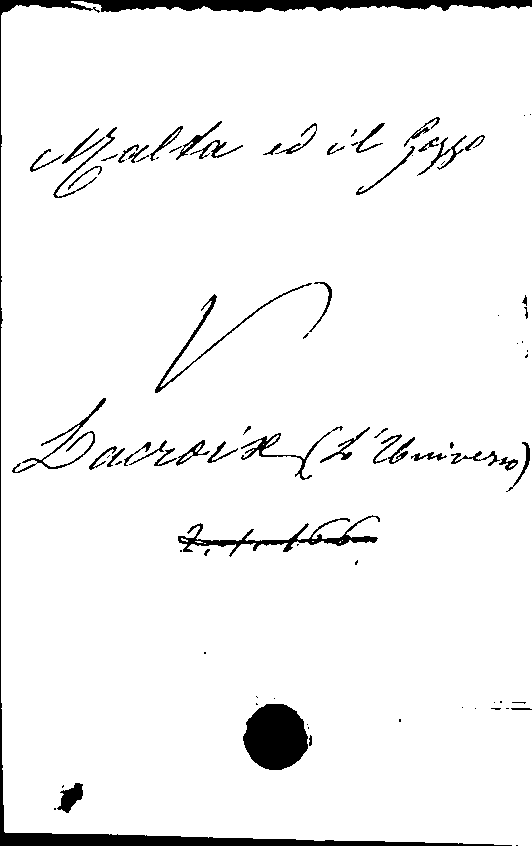 Malta ed il Gozzo
V
Lacroix (L'Universo)
2. 1. 166.